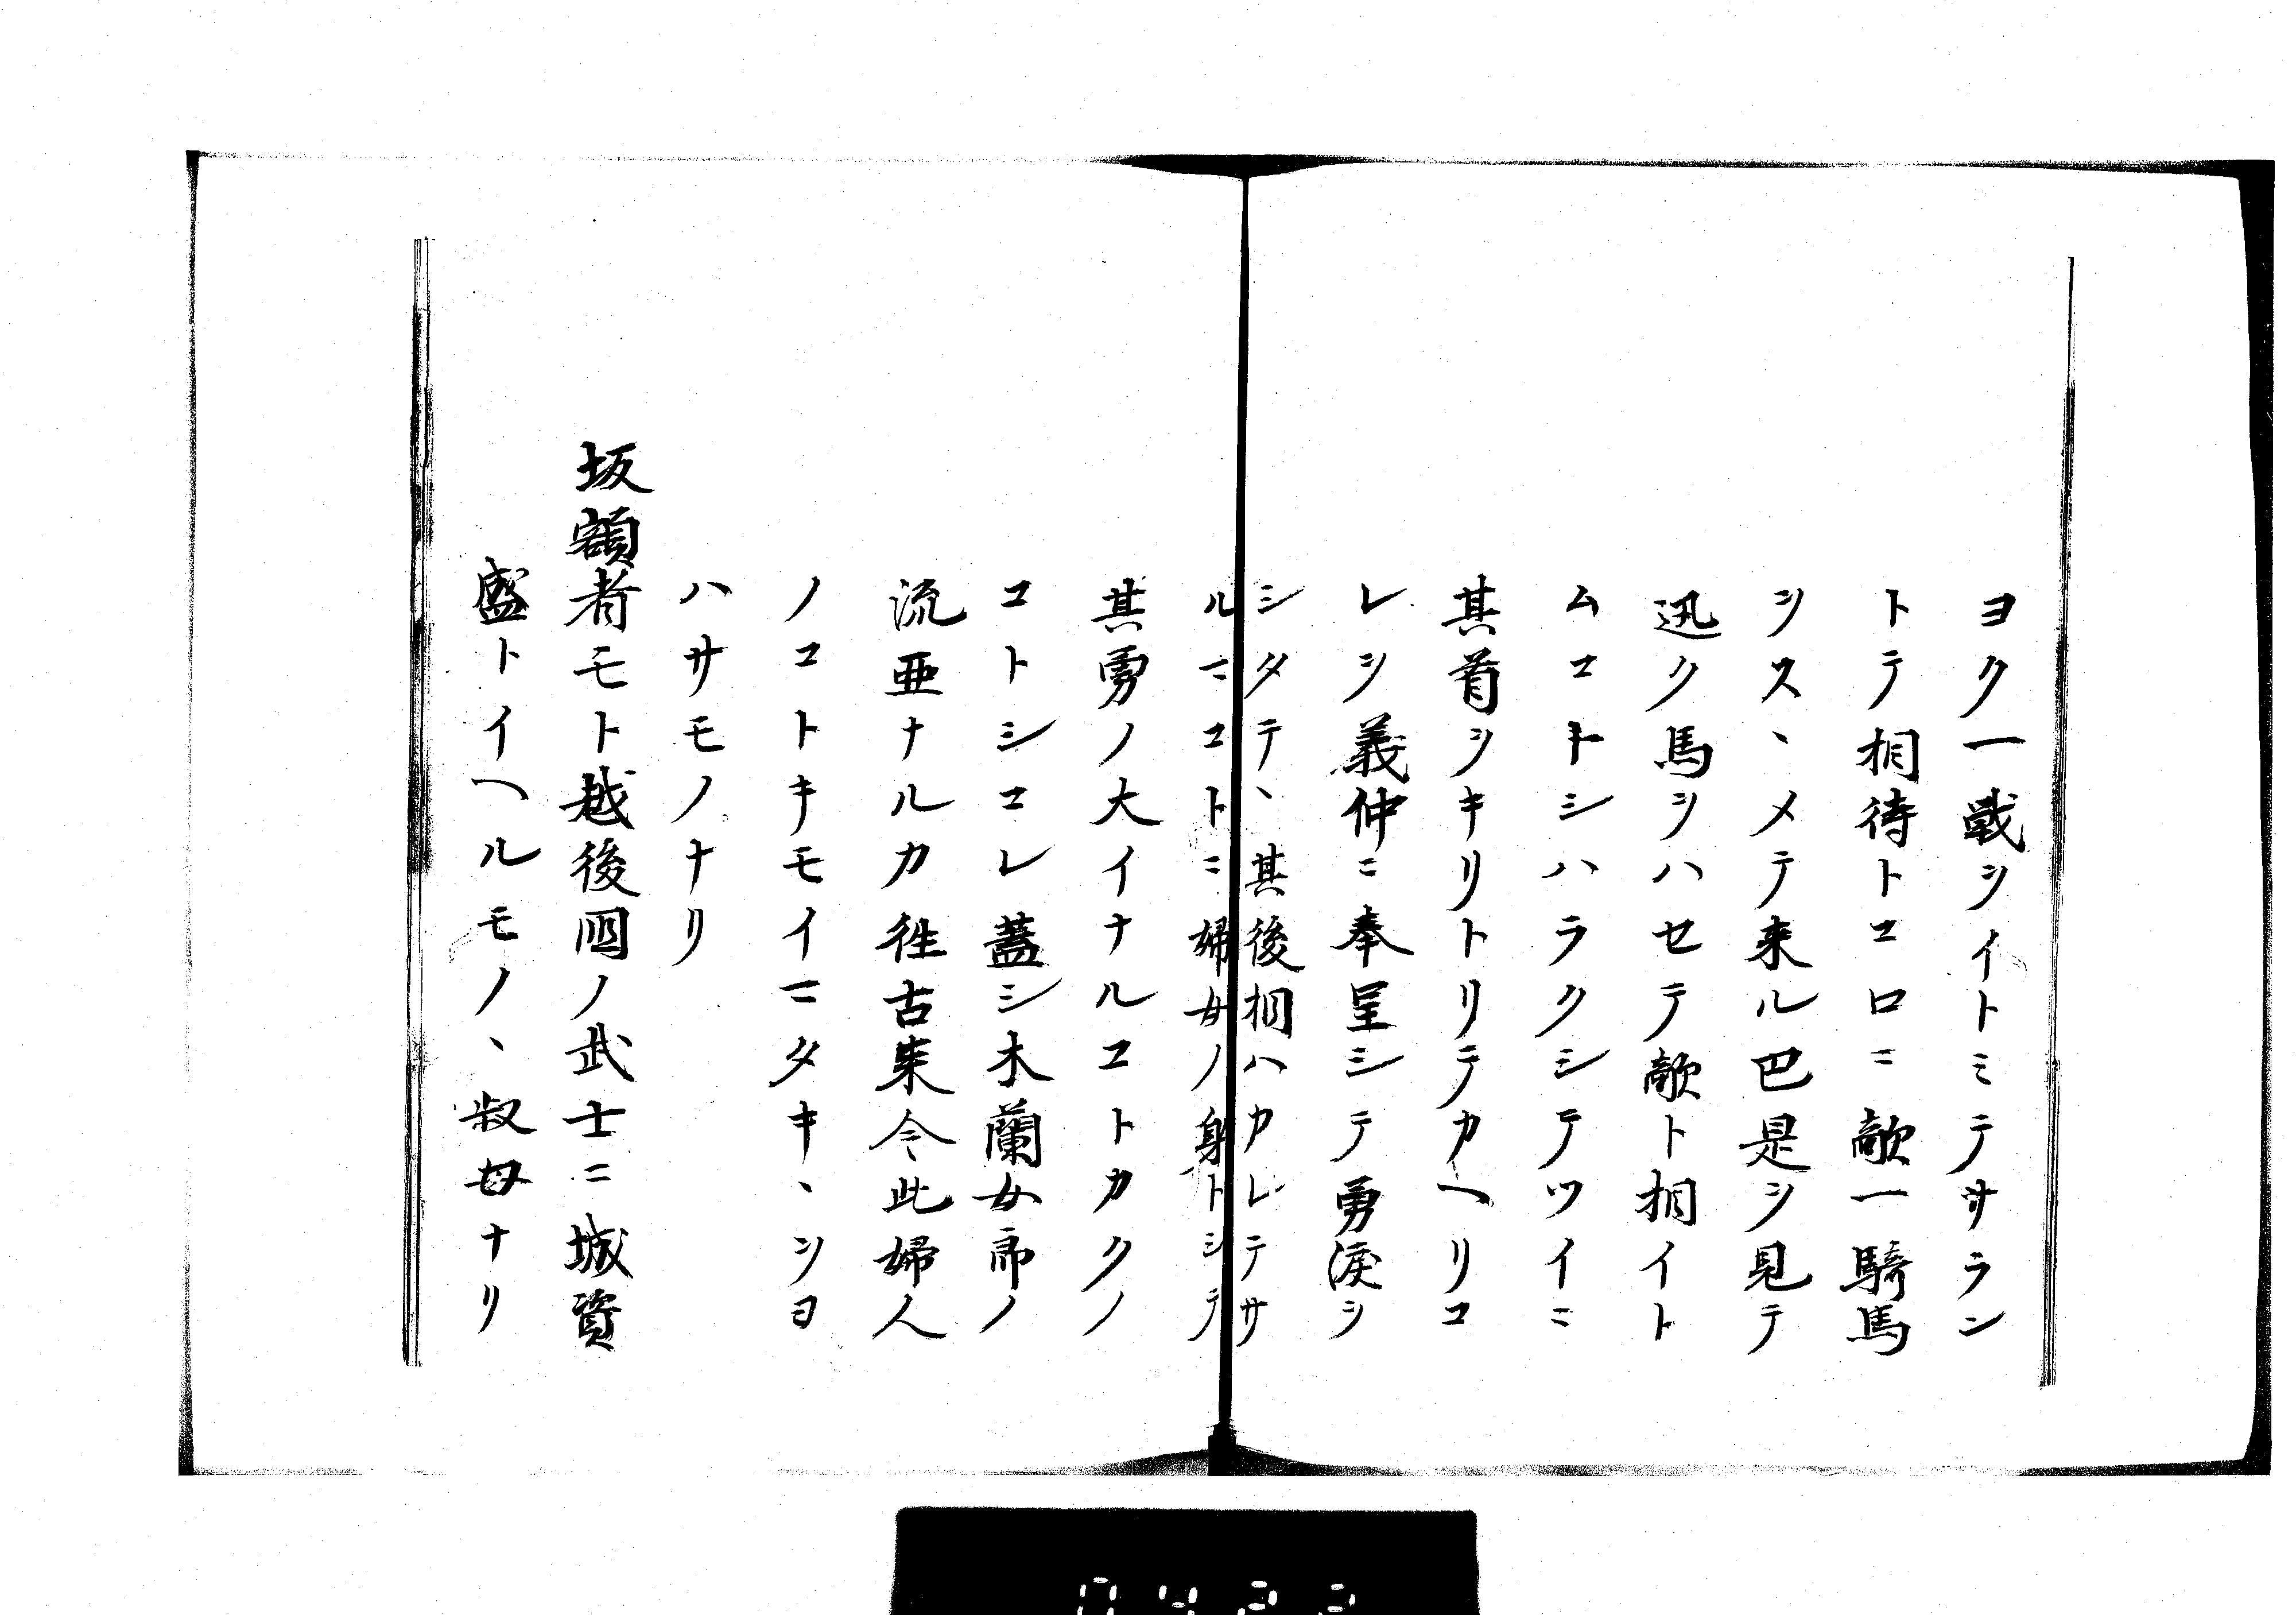 ヨク一戰ヲイトミテサラン
トテ相待トコロニ敵一騎馬
ヲスヽメテ来ル巴是ヲ見テ
迅ク馬ヲハセテ敵ト相イト
ムコトシハラクシテツイニ
其首ヲキリトリテカヘリコ
レヲ義仲ニ奉呈シテ勇涙ヲ
シタテヽ其後相ハカレテサ
ルマコトニ婦女ノ身トシテ
其勇ノ大イナルコトカクノ
コトシコレ蓋シ木蘭女帠ノ
流亜ナルカ徃古来今此婦人
ノコトキモイマタキヽヲヨ
ハサモノナリ
坂額者モト越後國ノ武士ニ城資
盛トイヘルモノヽ叔母ナリ
0422